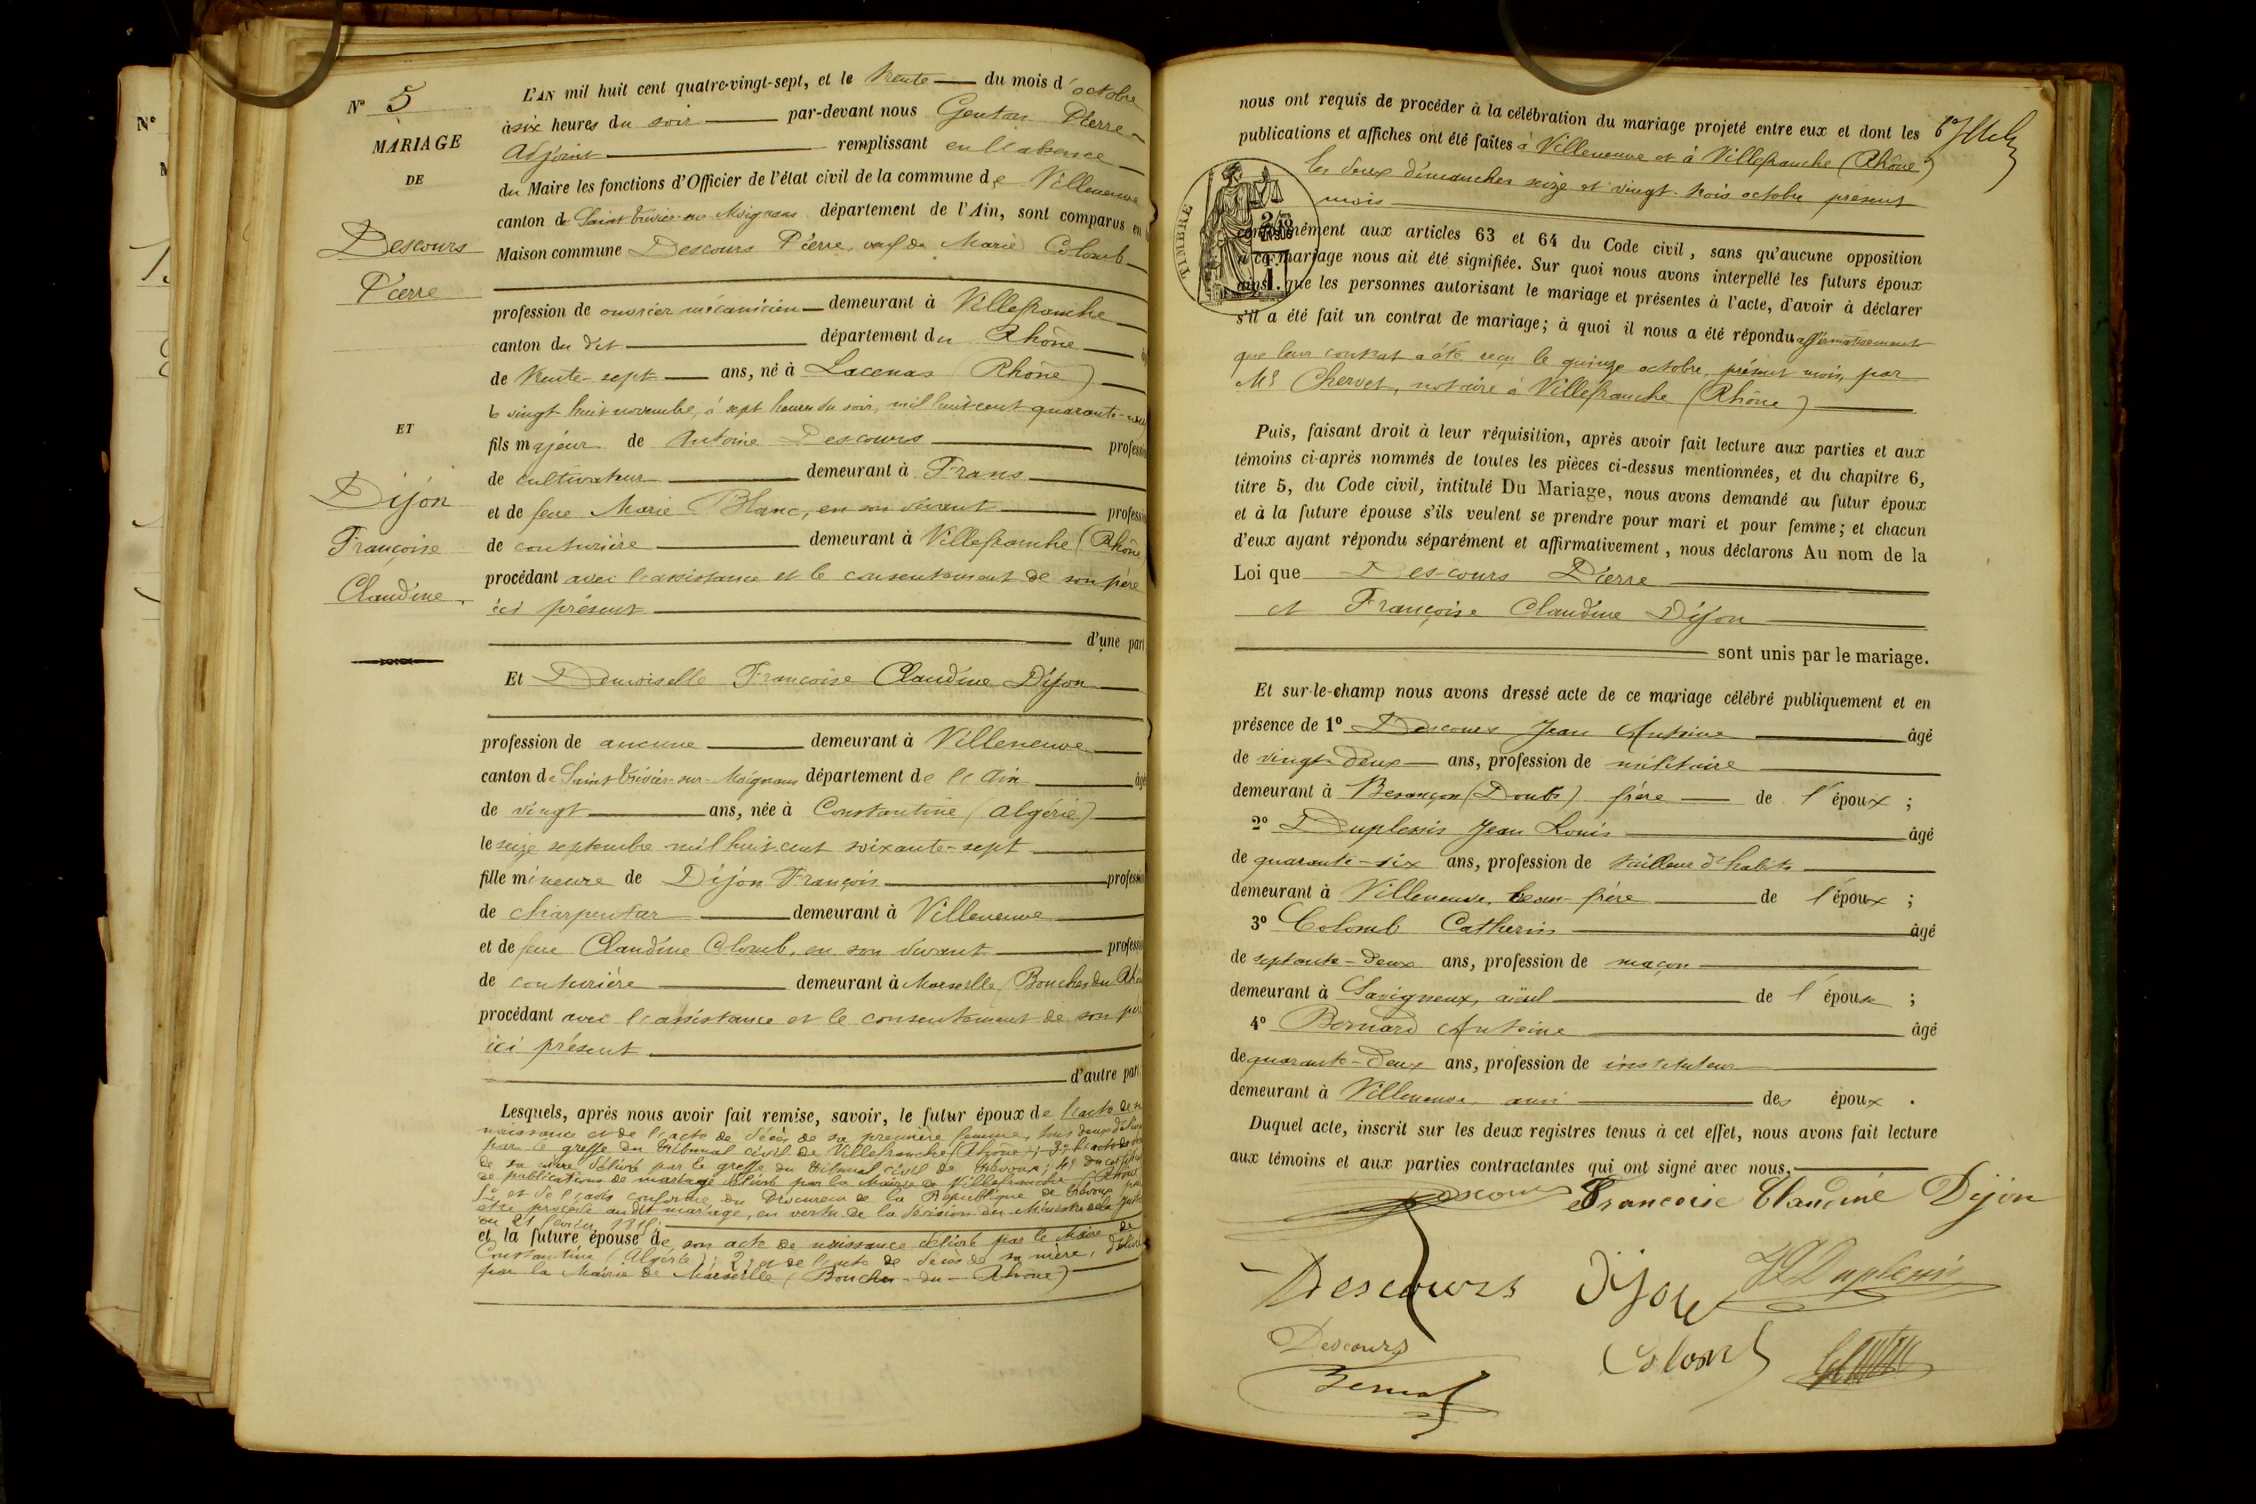 N° 5
MARIAGE
DE
Descours
Pierre
ET
Dijon
Françoise
Claudine
L'AN mil huit cent quatre-vingt-sept, et le trente du mois d'octobre
à six heures du soir par-devant nous Genton Pierre
Adjoint remplissant en l'absence
du Maire les fonctions d'Officier de l'état civil de la commune de Villeneuve
canton de Saint Trivier-sur-Moignans département de l'Ain, sont comparus en
Maison commune Descours Pierre, veuf de Marie Colomb
profession de ouvrier mécanicien demeurant à Villefranche
canton du dit département du Rhône
de trente-sept ans, né à Lacenas (Rhône)
le vingt huit novembre, à sept heures du soir, mil huit cent quarante-neuf
fils majeur de Antoine Descours profession
de cultivateur demeurant à Frans
et de feue Marie Blanc, en son vivant profession
de couturière demeurant à Villefranche (Rhône)
procédant avec l'assistance et le consentement de son père
ici présent
d'une part
Et Demoiselle Françoise Claudine Dijon
profession de aucune demeurant à Villeneuve
canton de Saint Trivier-sur-Moignans département de l'Ain âgé
de vingt ans, née à Constantine (Algérie)
le seize septembre mil huit cent soixante-sept
fille mineure de Dijon François profession
de charpentier demeurant à Villeneuve
et de feue Claudine Colomb, en son vivant profession
de couturière demeurant à Marseille (Bouches du Rhône
procédant avec l'assistance et le consentement de son père
ici présent
d'autre part
Lesquels, après nous avoir fait remise, savoir, le futur époux de l'acte de sa
naissance et de l'acte de décès de sa première femme, tous deux délivrés
par le greffe du tribunal civil de Villefranche (Rhône); 3° l'acte de décès
de sa mère délivré par le greffe du tribunal civil de Trévoux; 4° du certificat
de publications de mariage délivré par la Mairie de Villefranche (Rhône)
5° et de l'avis conforme du Procureur de la République de Trévoux pour
être procédé audit mariage, en vertu de la décision du Ministre de la Justice
du 21 février 1818.
et la future épouse de son acte de naissance délivré par le Maire de
Constantine (Algérie); 2° et de l'acte de décès de sa mère, délivré
par la Mairie de Marseille (Bouches-du-Rhône)
nous ont requis de procéder à la célébration du mariage projeté entre eux et dont les
publications et affiches ont été faites à Villeneuve et à Villefranche (Rhône)
les deux dimanches seize et vingt-trois octobre présent
mois
TIMBRE
conformément aux articles 63 et 64 du Code civil, sans qu'aucune opposition
à ce mariage nous ait été signifiée. Sur quoi nous avons interpellé les futurs époux
ainsi que les personnes autorisant le mariage et présentes à l'acte, d'avoir à déclarer
s'il a été fait un contrat de mariage; à quoi il nous a été répondu affirmativement
que leur contrat a été reçu le quinze octobre, présent mois, par
Me Chervet, notaire à Villefranche (Rhône)
Puis, faisant droit à leur réquisition, après avoir fait lecture aux parties et aux
témoins ci-après nommés de toutes les pièces ci-dessus mentionnées, et du chapitre 6,
titre 5, du Code civil, intitulé Du Mariage, nous avons demandé au futur époux
et à la future épouse s'ils veulent se prendre pour mari et pour femme; et chacun
d'eux ayant répondu séparément et affirmativement, nous déclarons Au nom de la
Loi que Descours Pierre
et Françoise Claudine Dijon
sont unis par le mariage.
Et sur-le-champ nous avons dressé acte de ce mariage célébré publiquement et en
présence de 1° Descours Jean Antoine âgé
de vingt-deux ans, profession de militaire
demeurant à Besançon (Doubs) frère de l'époux ;
2° Duplessis Jean Louis âgé
de quarante-six ans, profession de tailleur d'habits
demeurant à Villeneuve, beau-frère de l'époux ;
3° Colomb Catherin âgé
de septante-deux ans, profession de maçon
demeurant à Savigneux, aïeul de l'épouse ;
4° Bernard Antoine âgé
de quarante-deux ans, profession de instituteur
demeurant à Villeneuve, ami des époux .
Duquel acte, inscrit sur les deux registres tenus à cet effet, nous avons fait lecture
aux témoins et aux parties contractantes qui ont signé avec nous,
Descours Francoise Claudine Dijon
Descours Dijon JL Duplessis
Descours Colomb Genton
Bernard